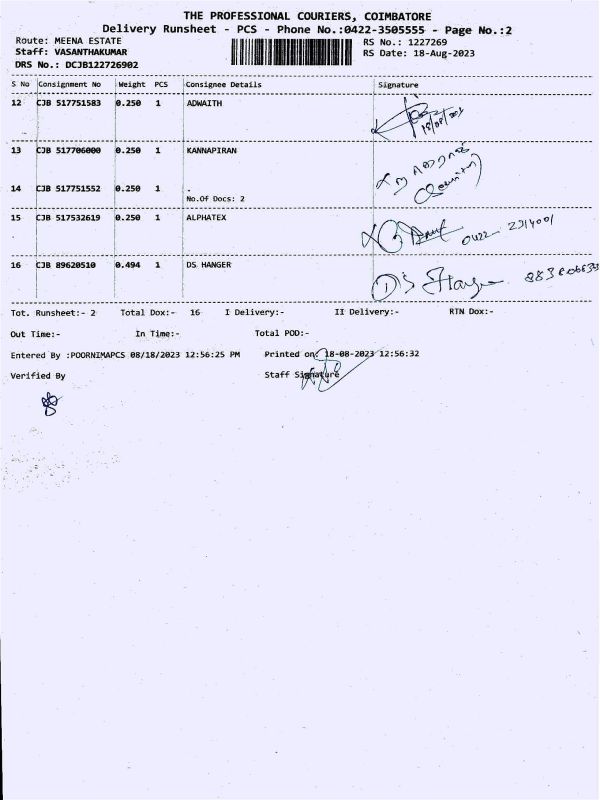 THE PROFESSIONAL COURIERS, COIMBATORE
Delivery Runsheet - PCS - Phone No.:0422-3505555 - Page No.:2
Route: MEENA ESTATE RS No.: 1227269
Staff: VASANTHAKUMAR RS Date: 18-Aug-2023
DRS No.: DCJB122726902
S No Consignment No Weight PCS Consignee Details Signature
12 CJB 517751583 0.250 1 ADWAITH
13 CJB 517706000 0.250 1 KANNAPIRAN
14 CJB 517751552 0.250 1 .
No.Of Docs: 2
15 CJB 517532619 0.250 1 ALPHATEX
0422- 2314001
16 CJB 89620510 0.494 1 DS HANGER
DS Hanger
Tot. Runsheet:- 2 Total Dox:- 16 I Delivery:- II Delivery:- RTN Dox:-
Out Time:- In Time:- Total POD:-
Entered By :POORNIMAPCS 08/18/2023 12:56:25 PM Printed on: 18-08-2023 12:56:32
Verified By Staff Signature